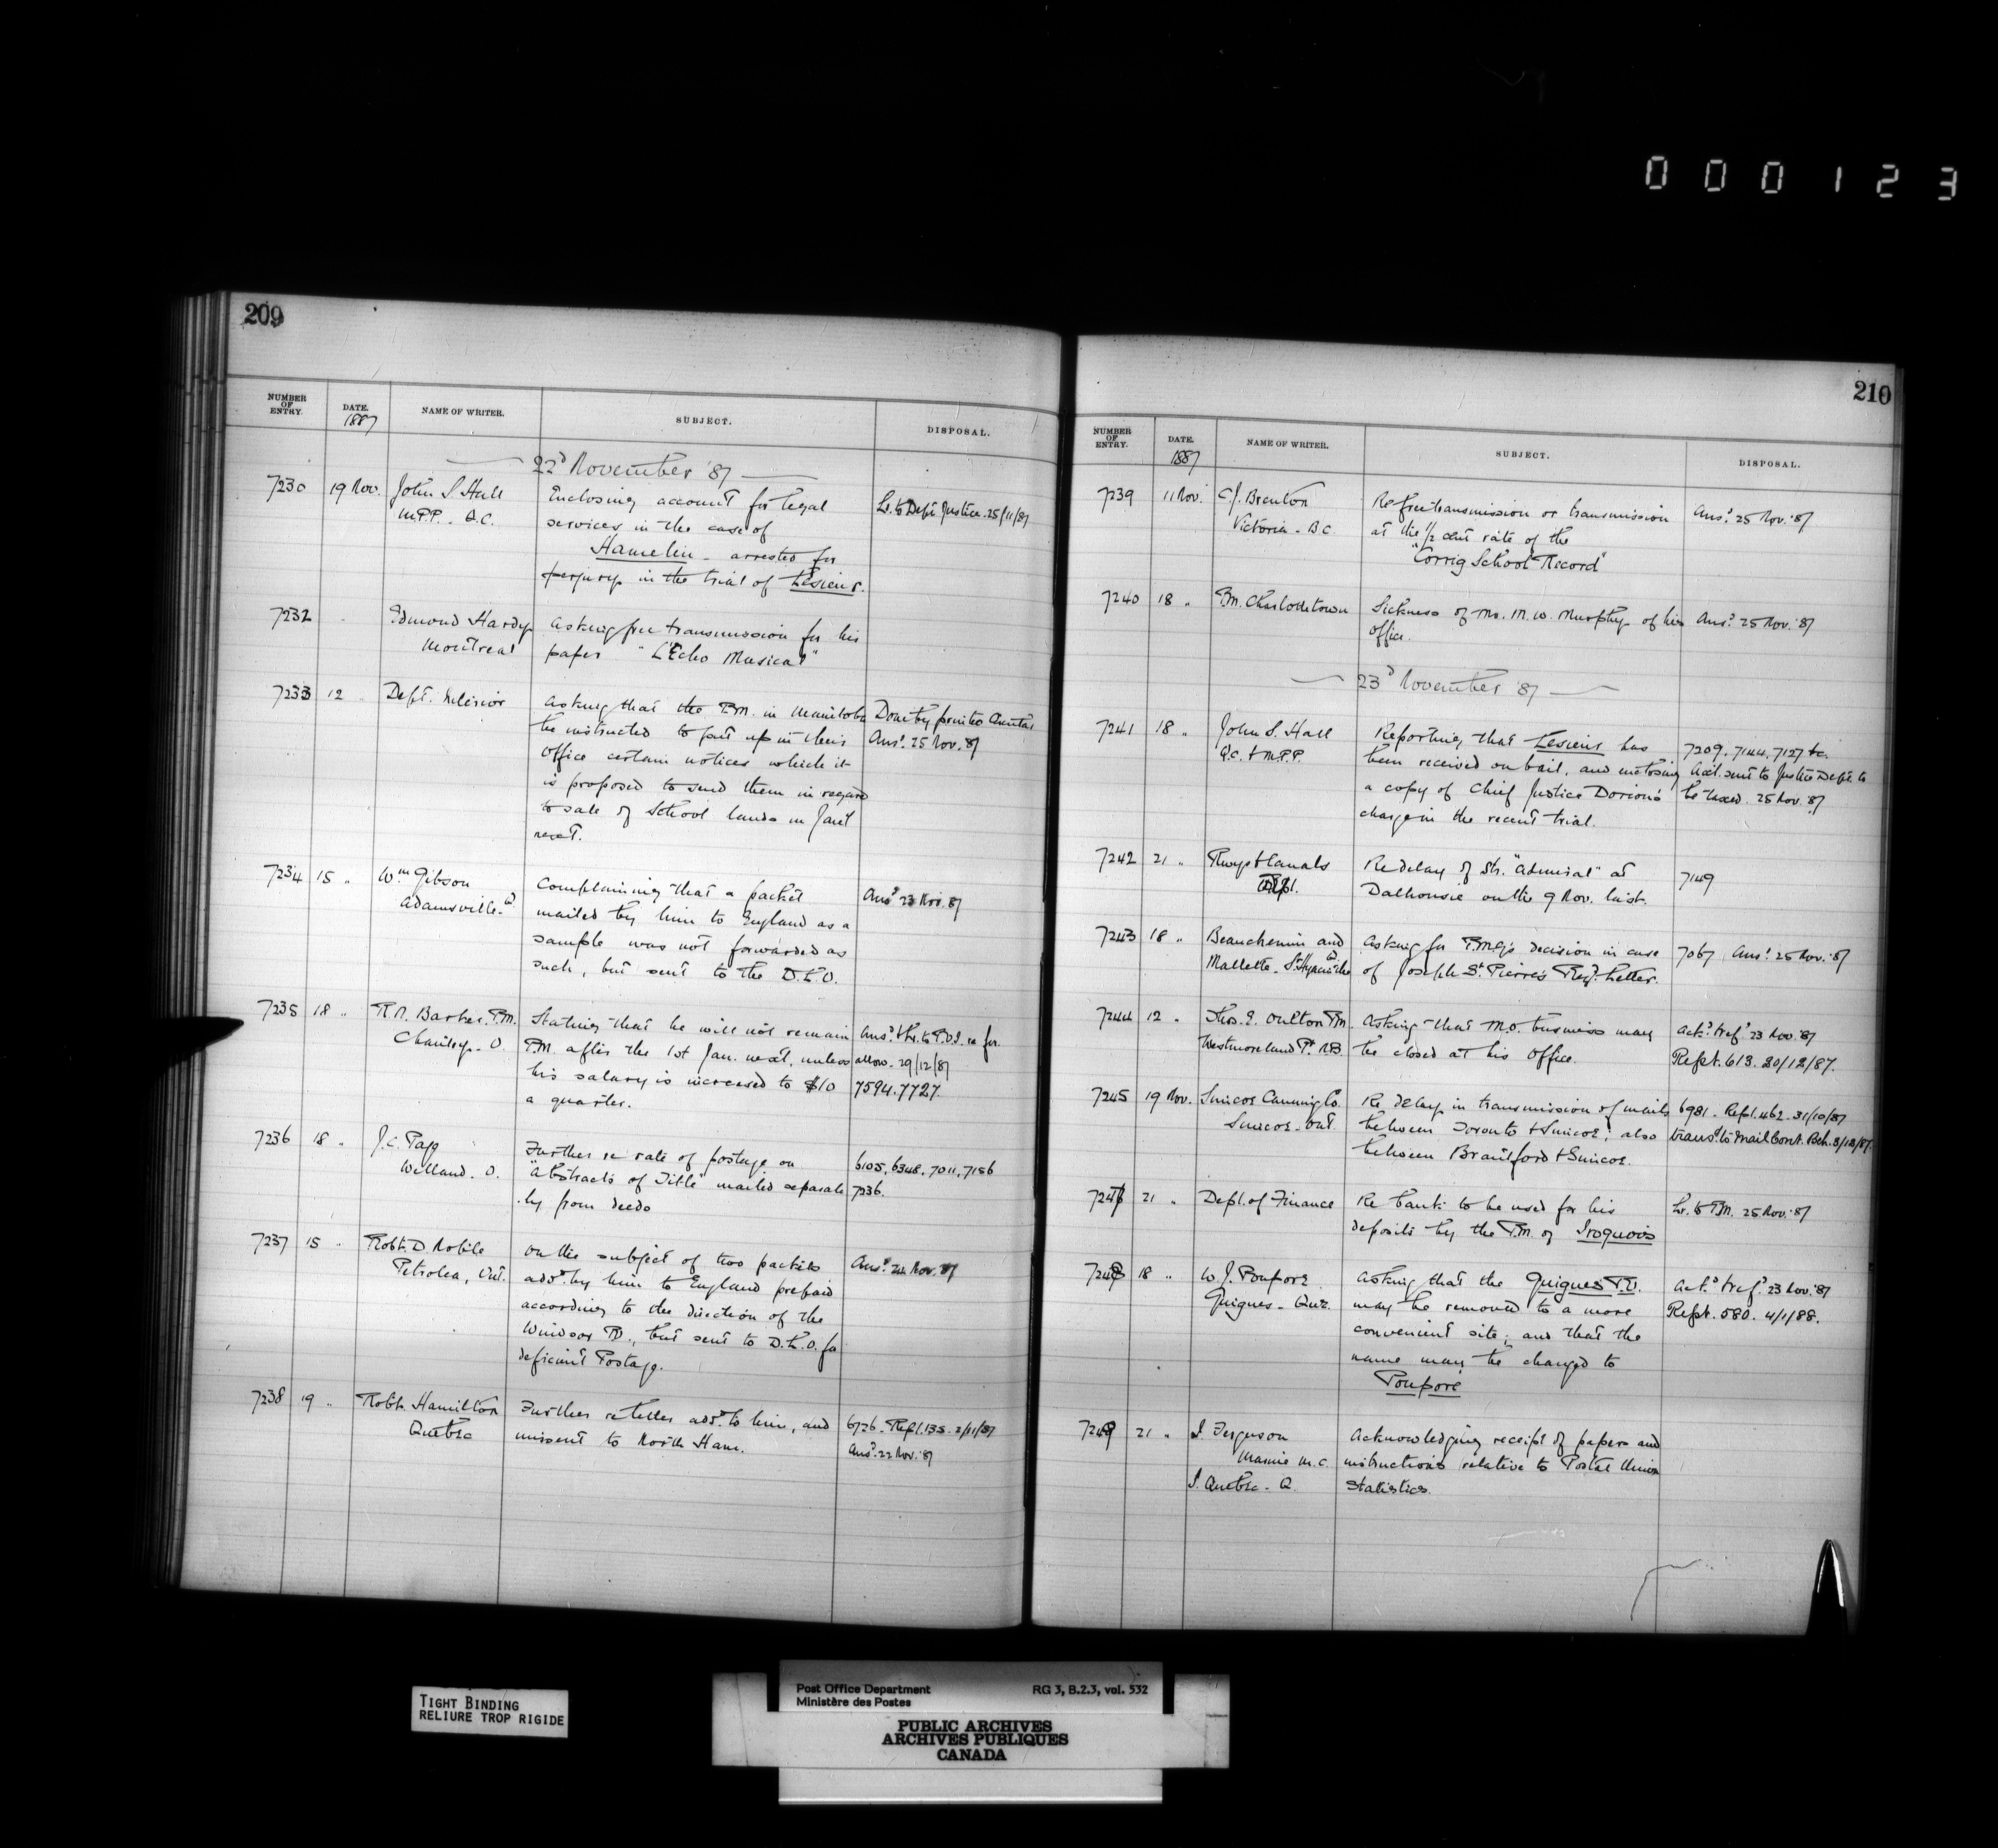 000123
209
NUMBER OF ENTRY. DATE. 1887 NAME OF WRITER. SUBJECT. DISPOSAL.
22d November '87
7230 19 Nov. John S. Hall Enclosing account for legal Lr. to Dept Justice. 25/11/87
M.P.P. Q.C. services in the case of
Hamelin - arrested for
perjury in the trial of Lesieur.
7232 Edmond Hardy Asking free transmission for his
Montreal paper "L'Echo Musical"
7233 12 " Dept. Interior Asking that the P.M. in Manitoba Done by printed
be instructed to put up in their Ansd. 25 Nov. 87
office certain notices which it
is proposed to send them in regard
to sale of School lands in Jany
next.
7234 15 " Wm Gibson Complaining that a packet Ansd 23 Nov. 87
Adamsville. mailed by him to England as a
sample was not forwarded as
such, but sent to the D.L.O.
7235 18 " R.R. Barber. P.M. Stating that he will not remain Ansd. & Lr. to P.O.I. re for
O. P.M. after the 1st Jan. next, unless allow. 29/12/87
his salary is increased to $10 7594. 7727.
a quarter.
7236 18 " J.C. Papp Further re rate of postage on 6105, 6348, 7011, 7156
Welland. O. "Abstracts of Title" mailed separate 7236.
ly from deeds
7237 15 " Robt. D. Noble On the subject of two packets Ansd. 22 Nov. 87
Petrolea, Ont. addd. by him to England prepaid
according to the direction of the
Windsor P.O., but sent to D.L.O. for
deficient Postage.
7238 19 " Robt. Hamilton Further re letter addd. to him, and 6726. Rept. 135. 2/11/87
Quebec missent to North Ham. Ansd. 22 Nov. 87
210
NUMBER OF ENTRY. DATE. 1887 NAME OF WRITER. SUBJECT. DISPOSAL.
7239 11 Nov. C.J. Brenton Re free transmission or transmission Ansd. 25 Nov. '87
Victoria - B.C. at the 1/2 cent rate of the
"Corrig School Record"
7240 18 " P.M. Charlottetown Sickness of Mr. M.W. Murphy of his Ansd. 25 Nov. '87
office.
23d November '87
7241 18 " John S. Hall Reporting that Lesieur has 7209, 7144, 7127 &c.
Q.C. & M.P.P. been received on bail, and enclosing Acct. sent to Justice Dept. to
a copy of Chief Justice Dorion's be taxed. 25 Nov. '87
charge in the recent trial.
7242 21 " Rwys & Canals Re delay of Str. "Admiral" at 7149
Dept. Dalhousie on the 9 Nov. last.
7243 18 " Beauchemin and Asking for P.M.G's decision in case 7067 Ansd. 25 Nov. '87
Mallette - St. Hyacinthe of Joseph St. Pierre's Regd. Letter.
7244 12 " Thos. E. Oulton P.M. Asking that M.O. business may Ackd. & refd. 23 Nov. '87
Westmoreland Pt. N.B. be closed at his office. Rept. 613. 30/12/87.
7245 19 Nov. Simcoe Canning Co. Re delay in transmission of mails 6981. Rept. 462. 31/10/87
Simcoe - Ont. between Toronto & Simcoe; also transd. to Mail Cont. Bch. 3/12/87.
between Brantford & Simcoe.
7247 21 " Dept. of Finance Re bank to be used for his Lr. to P.M. 25 Nov. '87
deposits by the P.M. of Iroquois
7248 18 " W.J. Poupore Asking that the Guigues P.O. Ackd. & refd. 23 Nov. '87
Guigues - Que. may be removed to a more Rept. 580. 4/1/88.
convenient site; and that the
name may be changed to
Poupore
7249 21 " I Ferguson Acknowledging receipt of papers and
Marine M.C. instructions relative to Postal Union
I. Quebec - Q. Statistics.
TIGHT BINDING
RELIURE TROP RIGIDE
Post Office Department RG 3, B.2.3, vol. 532
Ministère des Postes
PUBLIC ARCHIVES
ARCHIVES PUBLIQUES
CANADA